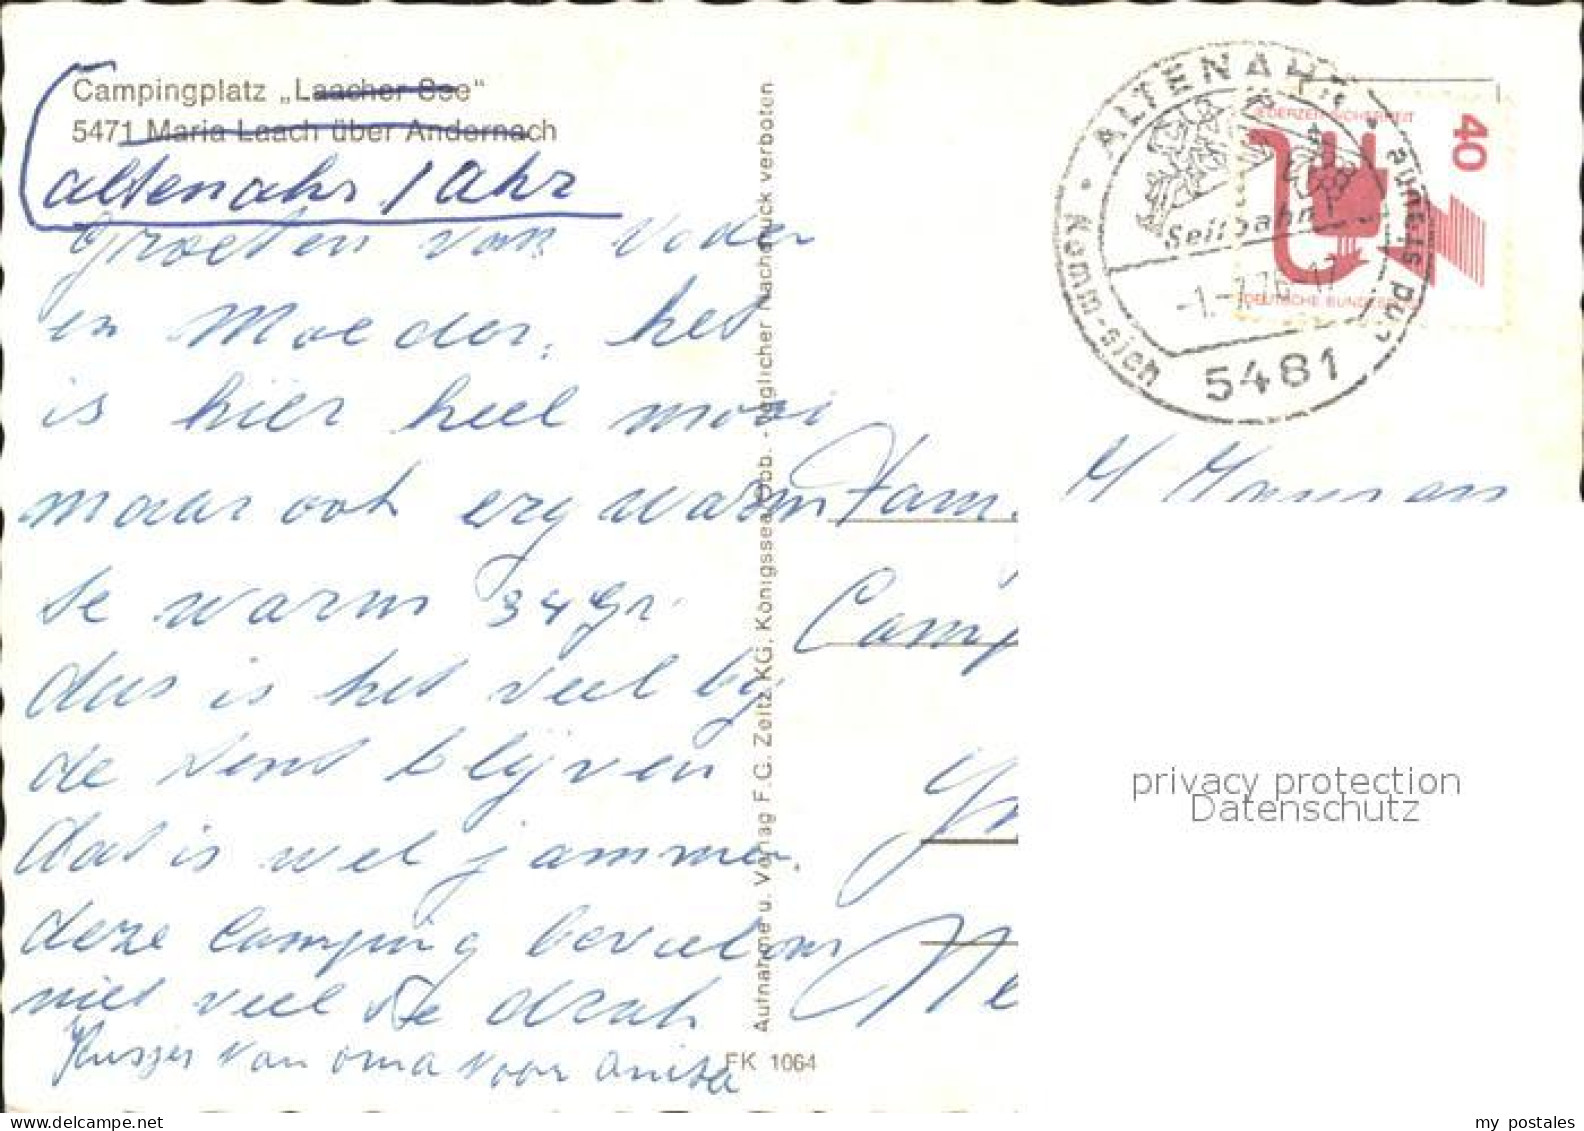 Campingplatz „Laacher See"
5471 Maria Laach über Andernach
altenahr / Ahr
Groeten van Vader
en Moeder, het
is hier heel mooi
maar ook erg warm
te warm 34 gr.
dus is het veel by
de tent blijven
dat is wel jammer.
deze Camping bevield ons
niet veel te druk
Kusjes van oma voor Anita
Aufnahme u. Verlag F.G. Zeitz KG, Königssee/Obb. - Jeglicher Nachdruck verboten
FK 1064
ALTENAHR
Komm-sieh und staune
Seilbahn
-1.-7.76-17
5481
JEDERZEIT SICHERHEIT
40
DEUTSCHE BUNDESPOST
Fam.
Camp
privacy protection
Datenschutz
my postales
www.delcampe.net